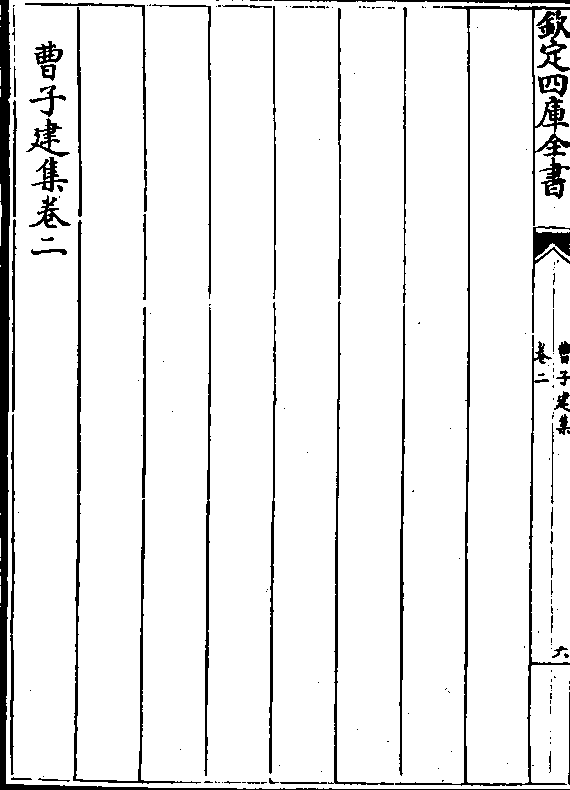 欽定四庫全書
曹子建集
卷二
六
曹子建集卷二